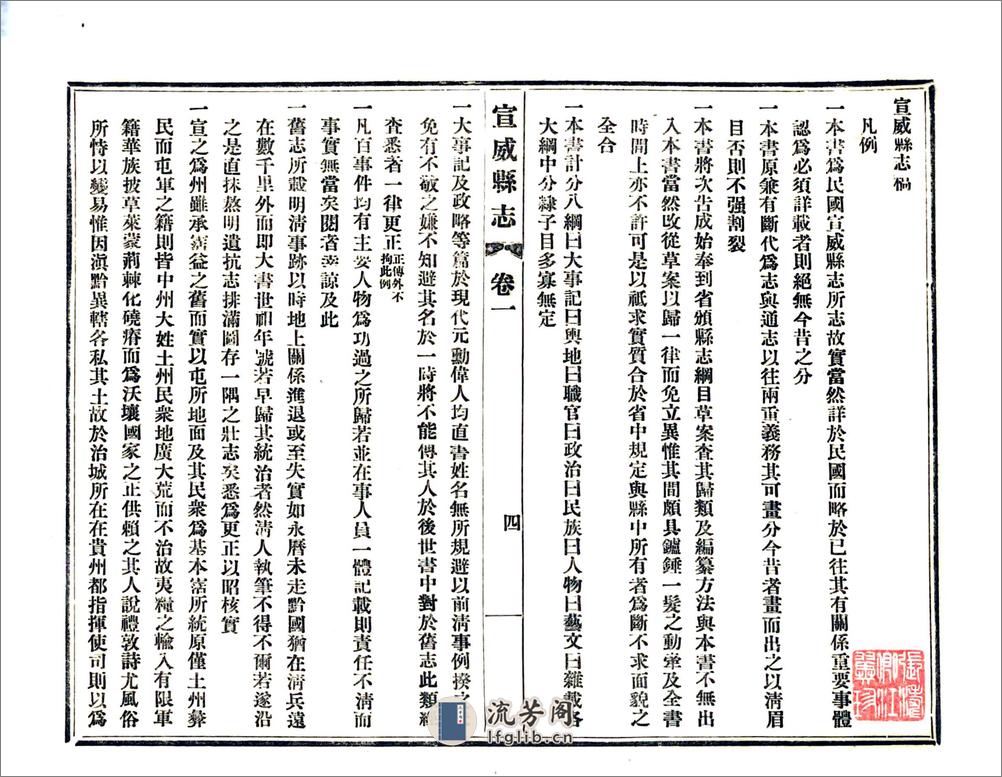 宣威縣志稿
凡例
一本書爲民國宣威縣志所志故實當然詳於民國而略於已往其有關係重要事體
認爲必須詳載者則絕無今昔之分
一本書原兼有斷代爲志與通志以往兩重義務其可畫分今昔者畫而出之以淸眉
目否則不强割裂
一本書將次吿成始奉到省頒縣志綱目草案查其歸類及編纂方法與本書不無出
入本書當然改從草案以歸一律而免立異惟其間頗具鑪錘一髮之動牽及全書
時間上亦不許可是以祇求實質合於省中規定與縣中所有者爲斷不求面貌之
全合
一本書計分八綱曰大事記曰輿地曰職官曰政治曰民族曰人物曰藝文曰雜載各
大綱中分隸子目多寡無定
宣威縣志
卷一
四
一大事記及政略等篇於現代元勳偉人均直書姓名無所規避以前淸事例揆之
免有不敬之嫌不知避其名於一時將不能傳其人於後世書中對於舊志此類
查悉者一律更正正傳外不拘此例
一凡百事件均有主要人物爲功過之所歸若並在事人員一體記載則責任不淸而
事實無當矣閱者幸諒及此
一舊志所載明淸事跡以時地上關係進退或至失實如永曆未走黔國猶在淸兵遠
在數千里外而即大書世祖年號若早歸其統治者然淸人執筆不得不爾若遂沿
之是直抹煞明遺抗志排滿圖存一隅之壯志矣悉爲更正以昭核實
一宣之爲州雖承霑益之舊而實以屯所地面及其民衆爲基本霑所統原僅土州彝
民而屯軍之籍則皆中州大姓土州民衆地廣大荒而不治故夷糧之輸入有限軍
籍華族披草萊蒙荊棘化磽瘠而爲沃壤國家之正供賴之其人說禮敦詩尤風俗
所恃以變易惟因滇黔異轄各私其土故於治城所在在貴州都指揮使司則以爲
流芳阁
lfglib.cn